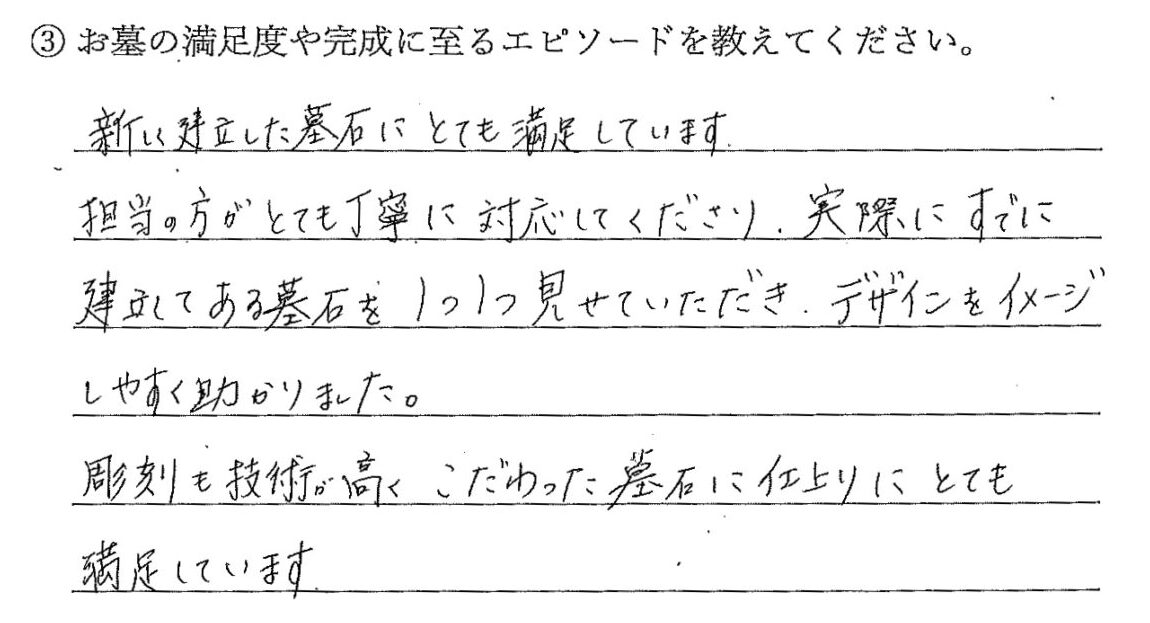 ③ お墓の満足度や完成に至るエピソードを教えてください。
新しく建立した墓石にとても満足しています.
担当の方がとても丁寧に対応してくださり、実際にすでに
建立してある墓石を1つ1つ見せていただき、デザインをイメージ
しやすく助かりました。
彫刻も技術が高く こだわった墓石に仕上りにとても
満足しています.